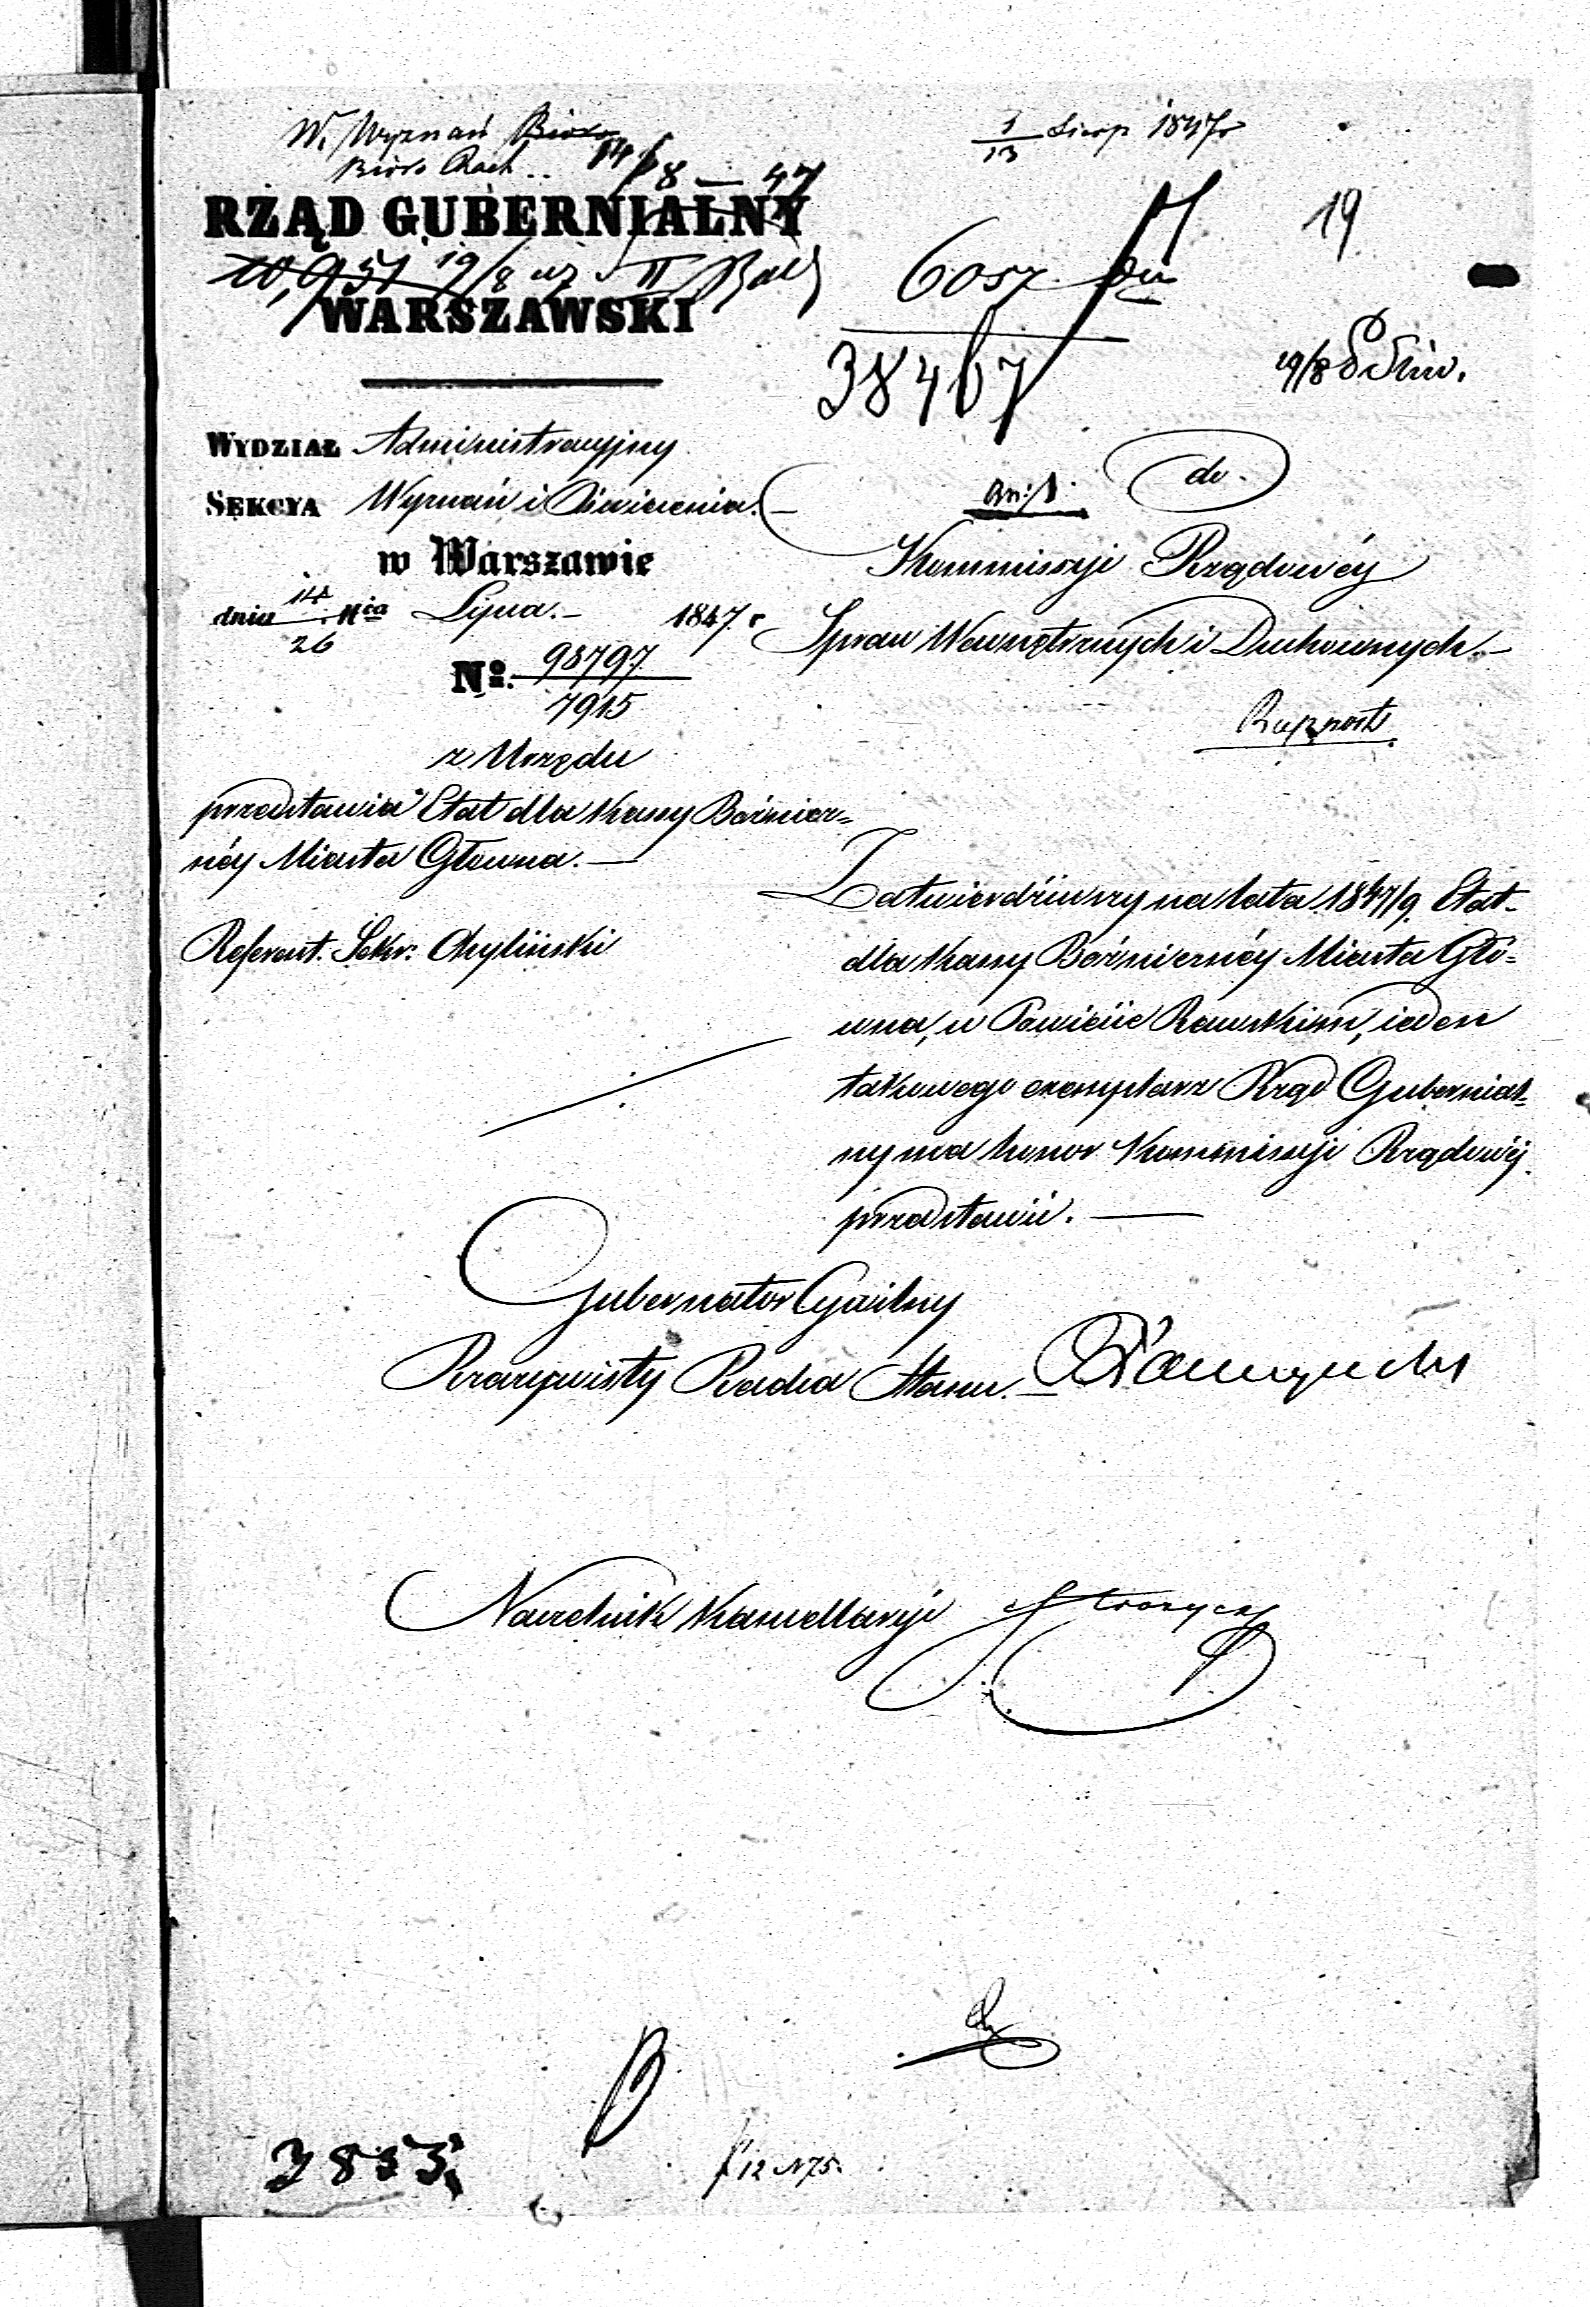 W. Wyznań Biuro
Biuro Rach.. 14/8 — 47
1/13 Sierp 1847 r
19
RZĄD GUBERNIALNY
WARSZAWSKI
6057
38467
19/8
WYDZIAŁ Administracyjny
SEKCYA Wyznań i Oświecenia.
w Warszawie
dnia 14/26 Lipca.– 1847 r
No. 98797/7915
z Urzędu
przedstawia Etat dla Kassy Bożnicz=
néy Miasta Głowna. —
Referent. Sekr: Chyliński
do.
Kommissyi Rządowéy
Spraw Wewnętrznych i Duchownych.–
Rapport.
Zatwierdziwszy na lata 1847/9. Etat
dla Kassy Bożnicznéy Miasta Gło=
wna, w Powiecie Rawskim, ieden
takowego exemplarz Rząd Gubernial=
ny ma honor Kommissyi Rządowéj
przedstawić. —
Gubernator Cywilny
Rzeczywisty Radca Stanu.
Naczelnik Kancellaryi